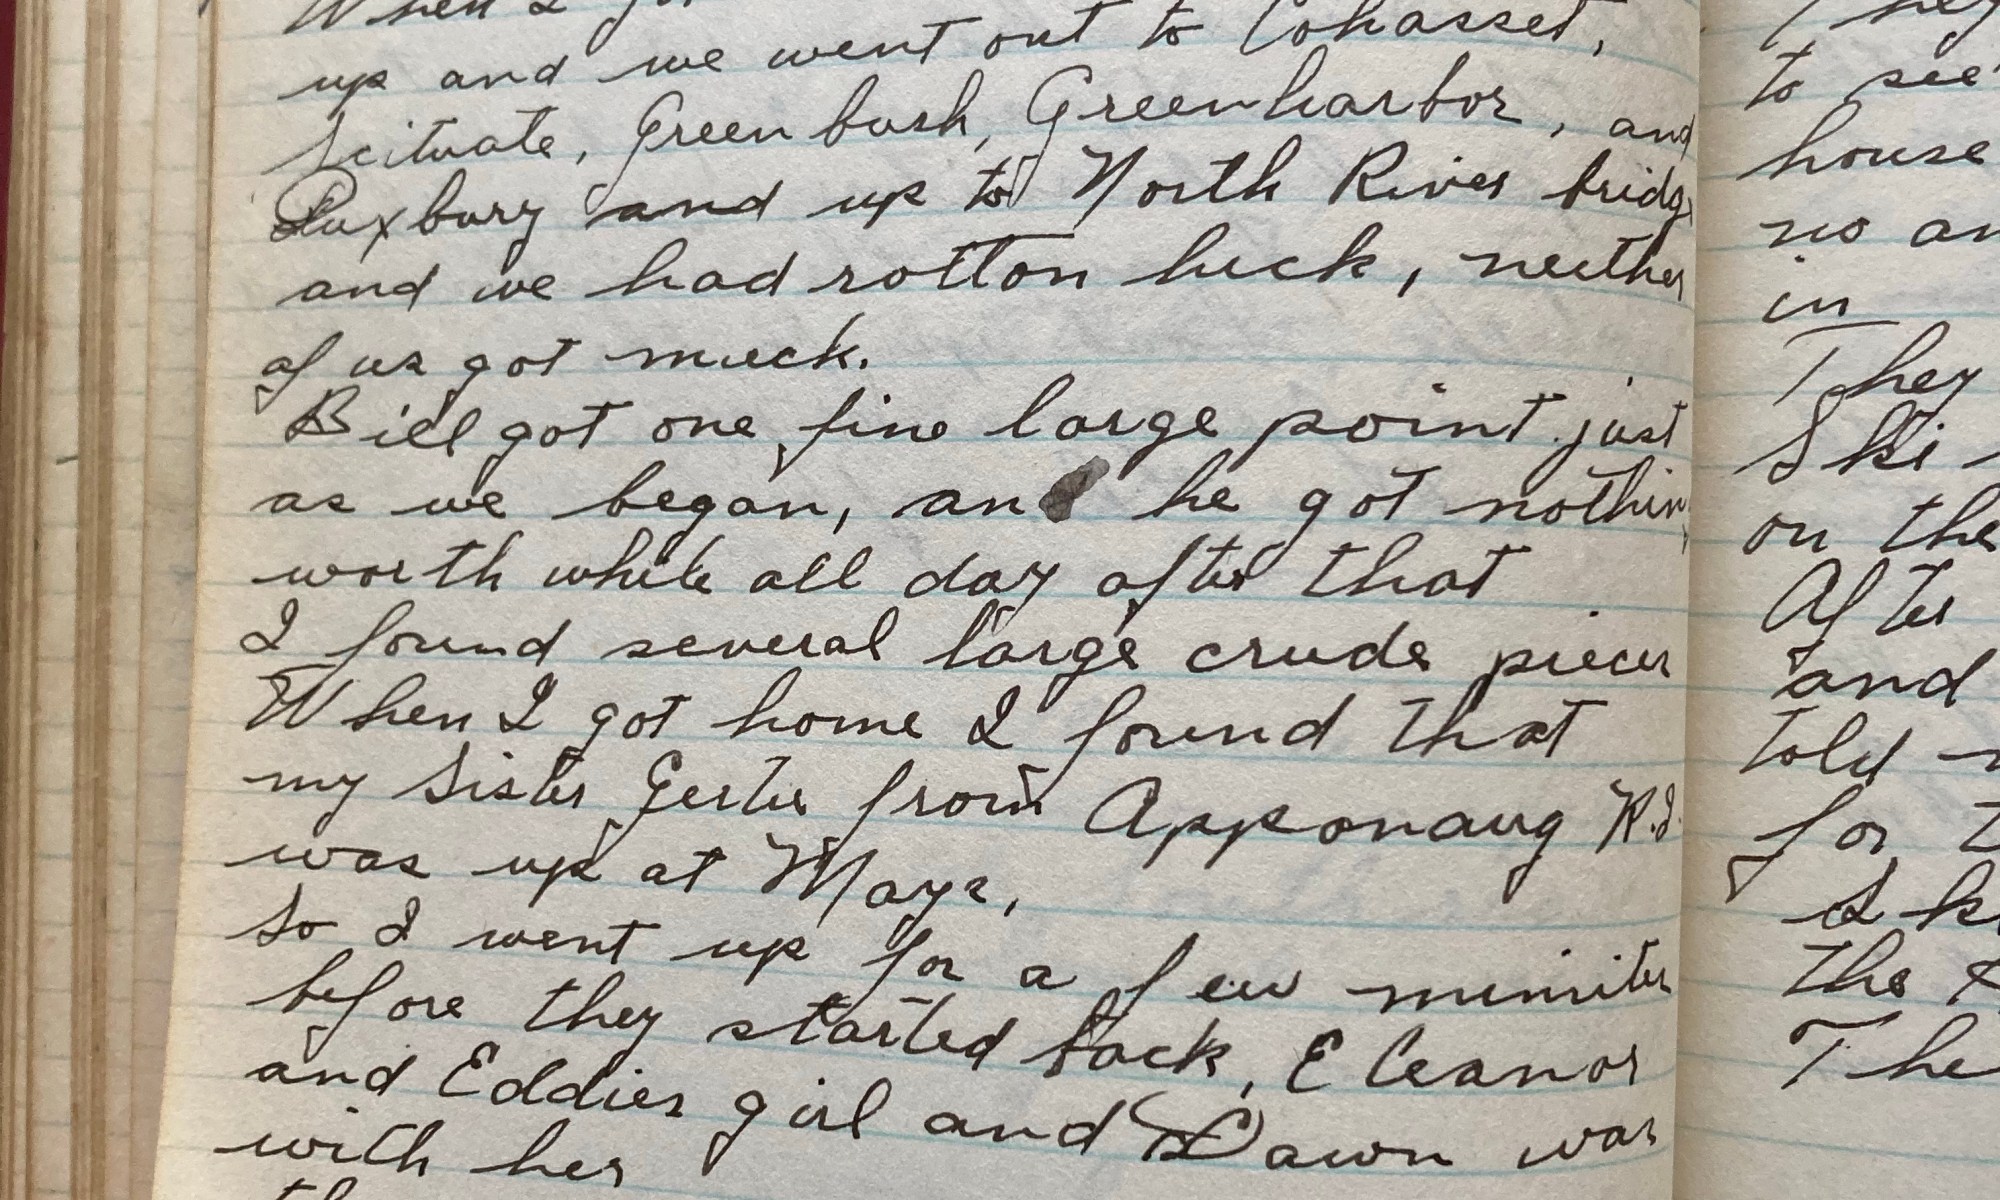 When I
up and we went out to Cohasset,
Scituate, Greenbush, Greenharbor, and
Duxbury and up to North River bridg
and we had rotton luck, neither
of us got muck.
Bill got one fine large point just
as we began, and he got nothin
worth while all day after that
I found several large crude pieces
When I got home I found that
my Sister Gertie from Apponaug R.I.
was up at Mays,
So I went up for a few minites
before they started back, Eleanor
and Eddies girl and Dawn was
with her
They
to see
house
no an
in
They
Ski
on the
After
and
told
for
Sk
the
The